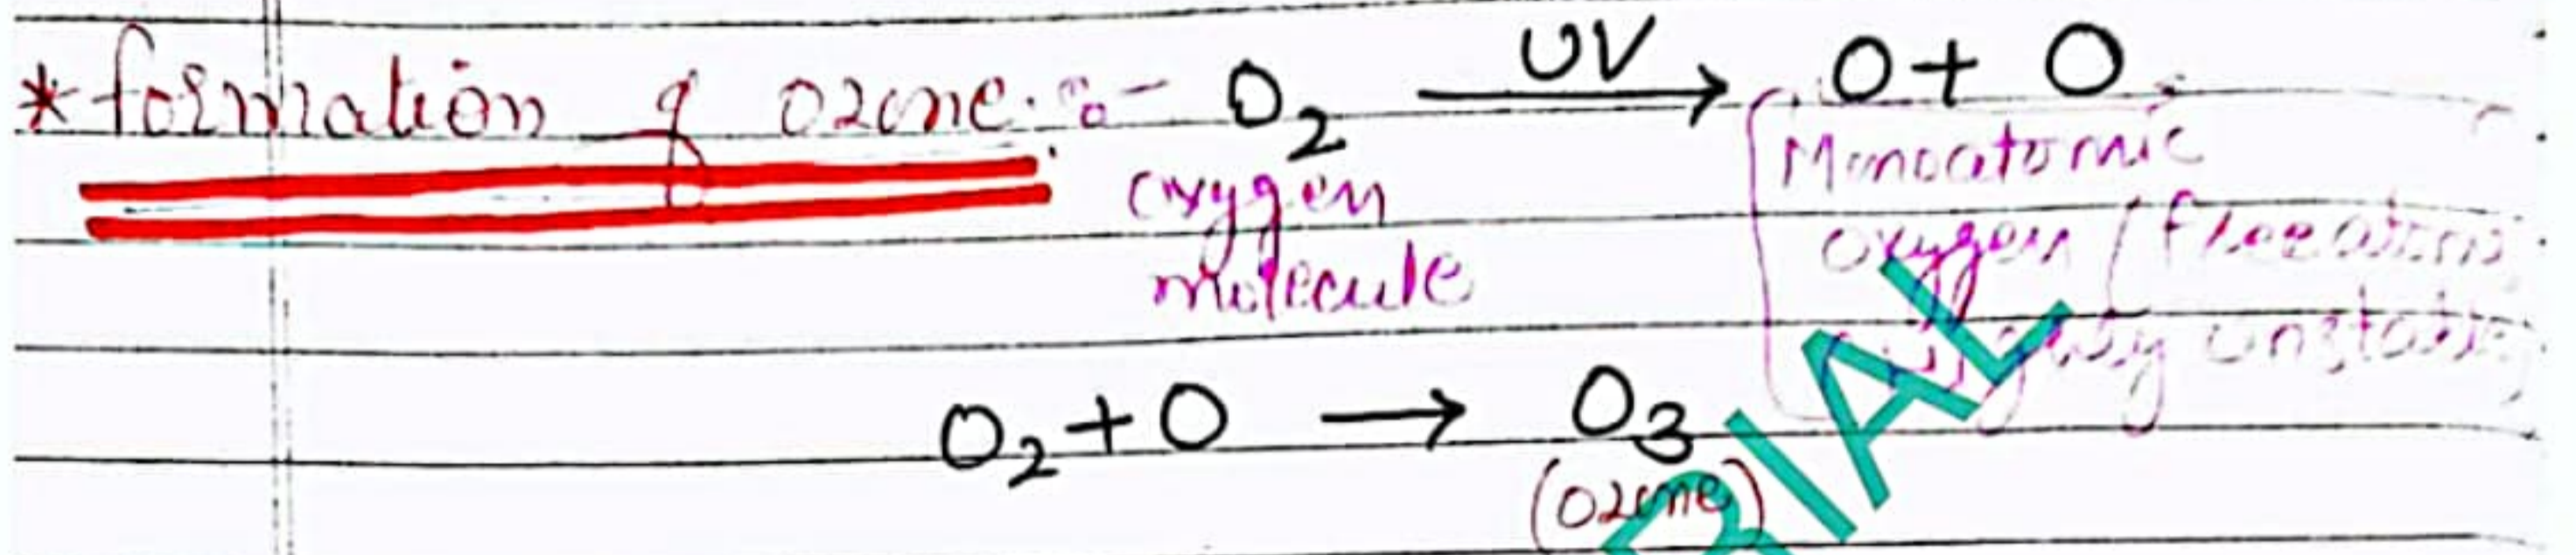 *formation of ozone :- O₂ UV→ O + O
oxygen molecule
Monoatomic oxygen / free atoms
highly unstable
O₂ + O → O₃
(ozone)
IAL